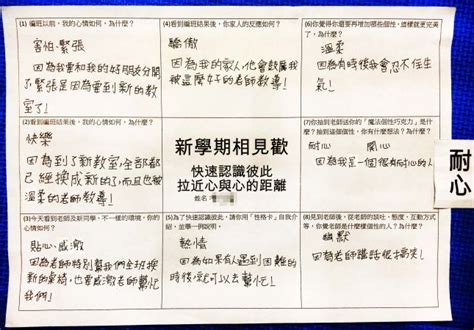 (1) 編班以前,我的心情如何,為什麼?
害怕、緊張
因為我要和我的好朋友分開
了,緊張是因為要到新的教
室了!
(4)看到編班結果後,你家人的反應如何?
驕傲
因為我的家人,他會
被這麼好的老師教導!
(6)你覺得你還要再增加哪些個性,這樣就更完美
了,為什麼?
溫柔
因為有時後我會忍不住生
氣!
(2)看到編班結果後,我的心情如何,為什麼?
快樂
因為到了新教室,全部都
已經換成新的,而且也被
溫柔的老師教導!
新學期相見歡
快速認識彼此
拉近心與心的距離
姓名
(7)你抽到老師送你的「魔法個性巧克力」是什
麼?抽到這個個性,你有什麼想法?為什麼?
耐心 開心
因為我是一個很有耐心的人
耐心
(3)今天看到老師及新同學、不一樣的環境,你的
心情如何?為什麼?
貼心、感激
因為老師特別幫我們全班換
新的桌椅,也會感激老師幫忙
我們!
(5)為了快速認識彼此,請你用「性格卡」自我介
紹,並舉一例說明。
熱情
因為如果有人遇到困難的
時後,就可以去幫忙!
(8)見到老師後,從老師的談吐、態度、互動方式
等,你覺老師是什麼樣個性的人?為什麼?
幽默
因為老師講話很搞笑!